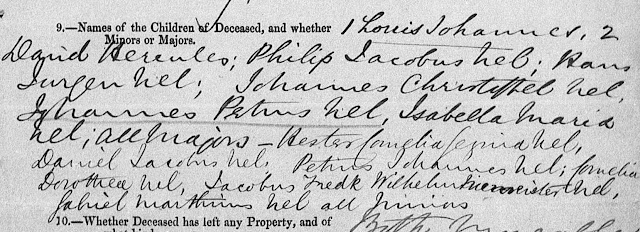 9.—Names of the Children of Deceased, and whether 1 Louis Johannes, 2
Minors or Majors.
David Hercules; Philip Jacobus Nel; Hans
Jurgen Nel; Johannes Christoffel Nel,
Johannes Petrus Nel, Isabella Maria
Nel; all Majors — Hester Cornelia Nel,
Daniel Jacobus Nel; Petrus Johannes Nel; Cornelia
Dorothea Nel, Jacobus Fredk Wilhelm Nel,
Gabriel Marthinus Nel all Minors
10.—Whether Deceased has left any Property, and of
Both